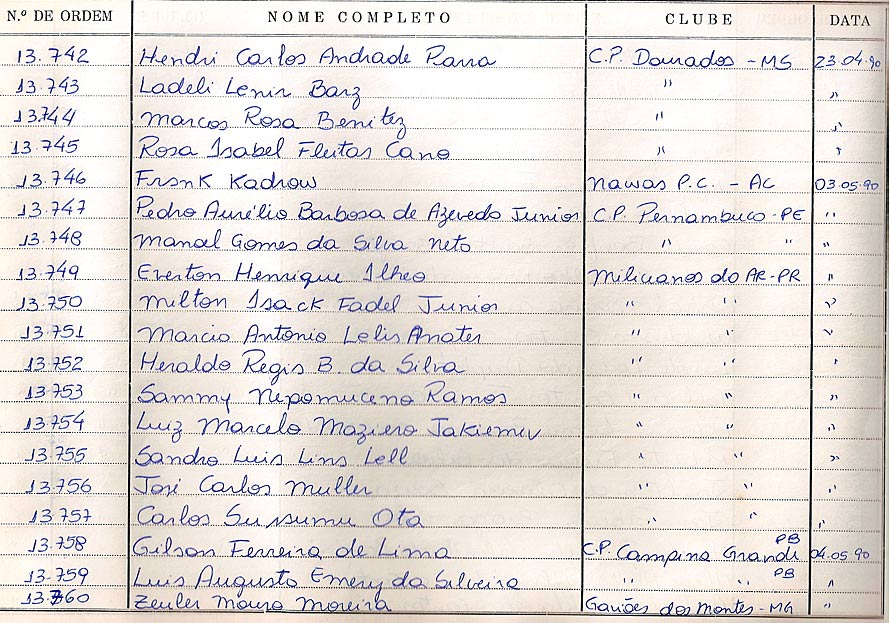 N.º DE ORDEM NOME COMPLETO CLUBE DATA
13.742 Hendri Carlos Andrade Parra C.P. Dourados - MS 23.04.90
13.743 Ladeli Lenir Barz " "
13.744 Marcos Rosa Benitez " "
13.745 Rosa Isabel Fleitas Cano " "
13.746 Frank Kadrow Nawas P.C. - AC 03.05.90
13.747 Pedro Aurélio Barbosa de Azevedo Junior C.P. Pernambuco - PE "
13.748 Manoel Gomes da Silva Neto " " "
13.749 Everton Henrique Ilheo Milicianos do AR-PR "
13.750 Milton Isack Fadel Junior " " "
13.751 Marcio Antonio Lelis Anater " " "
13.752 Heraldo Regis B. da Silva " " "
13.753 Sammy Nepomuceno Ramos " " "
13.754 Luiz Marcelo Maziero " " "
13.755 Sandro Luis Lins Lell " " "
13.756 José Carlos Muller " " "
13.757 Carlos Sussumu Ota " " "
13.758 Gilson Ferreira de Lima C.P. Campina Grande PB 04.05.90
13.759 Luis Augusto Emery da Silveira " " PB "
13.760 Zeuler Mauro Moreira Gaviões dos Montes - MG "